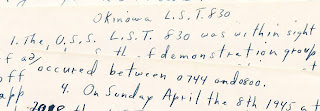 Okinawa L.S.T. 830
1. The, U.S.S. L.S.T. 830 was within sight
of a demonstration group
off occured between 0744 and 0800.
app 4. On Sunday April the 8th 1945 a